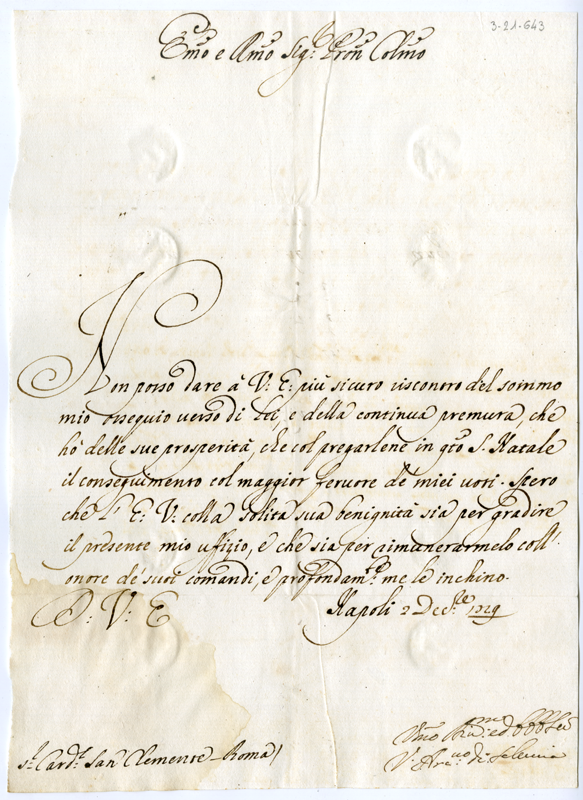 3-21-643
Emo e Rmo Sigr. Pron Colmo
Non posso dare à V: E: più sicuro riscontro del sommo
mio ossequio verso di Lei, e della continua premura, che
hò delle sue prosperità, che col pregarlene in qto S. Natale
il conseguimento col maggior fervore de' miei voti. Spero
che l' E: V: colla solita sua benignità sia per gradire
il presente mio uffizio, e che sia per rimunerarmelo coll'
onore de' suoi comandi, e profondamte. me le inchino.
D: V: E
Napoli 2 Decre. 1729
Sr. Cardl. San Clemente - Roma
di Seleucia